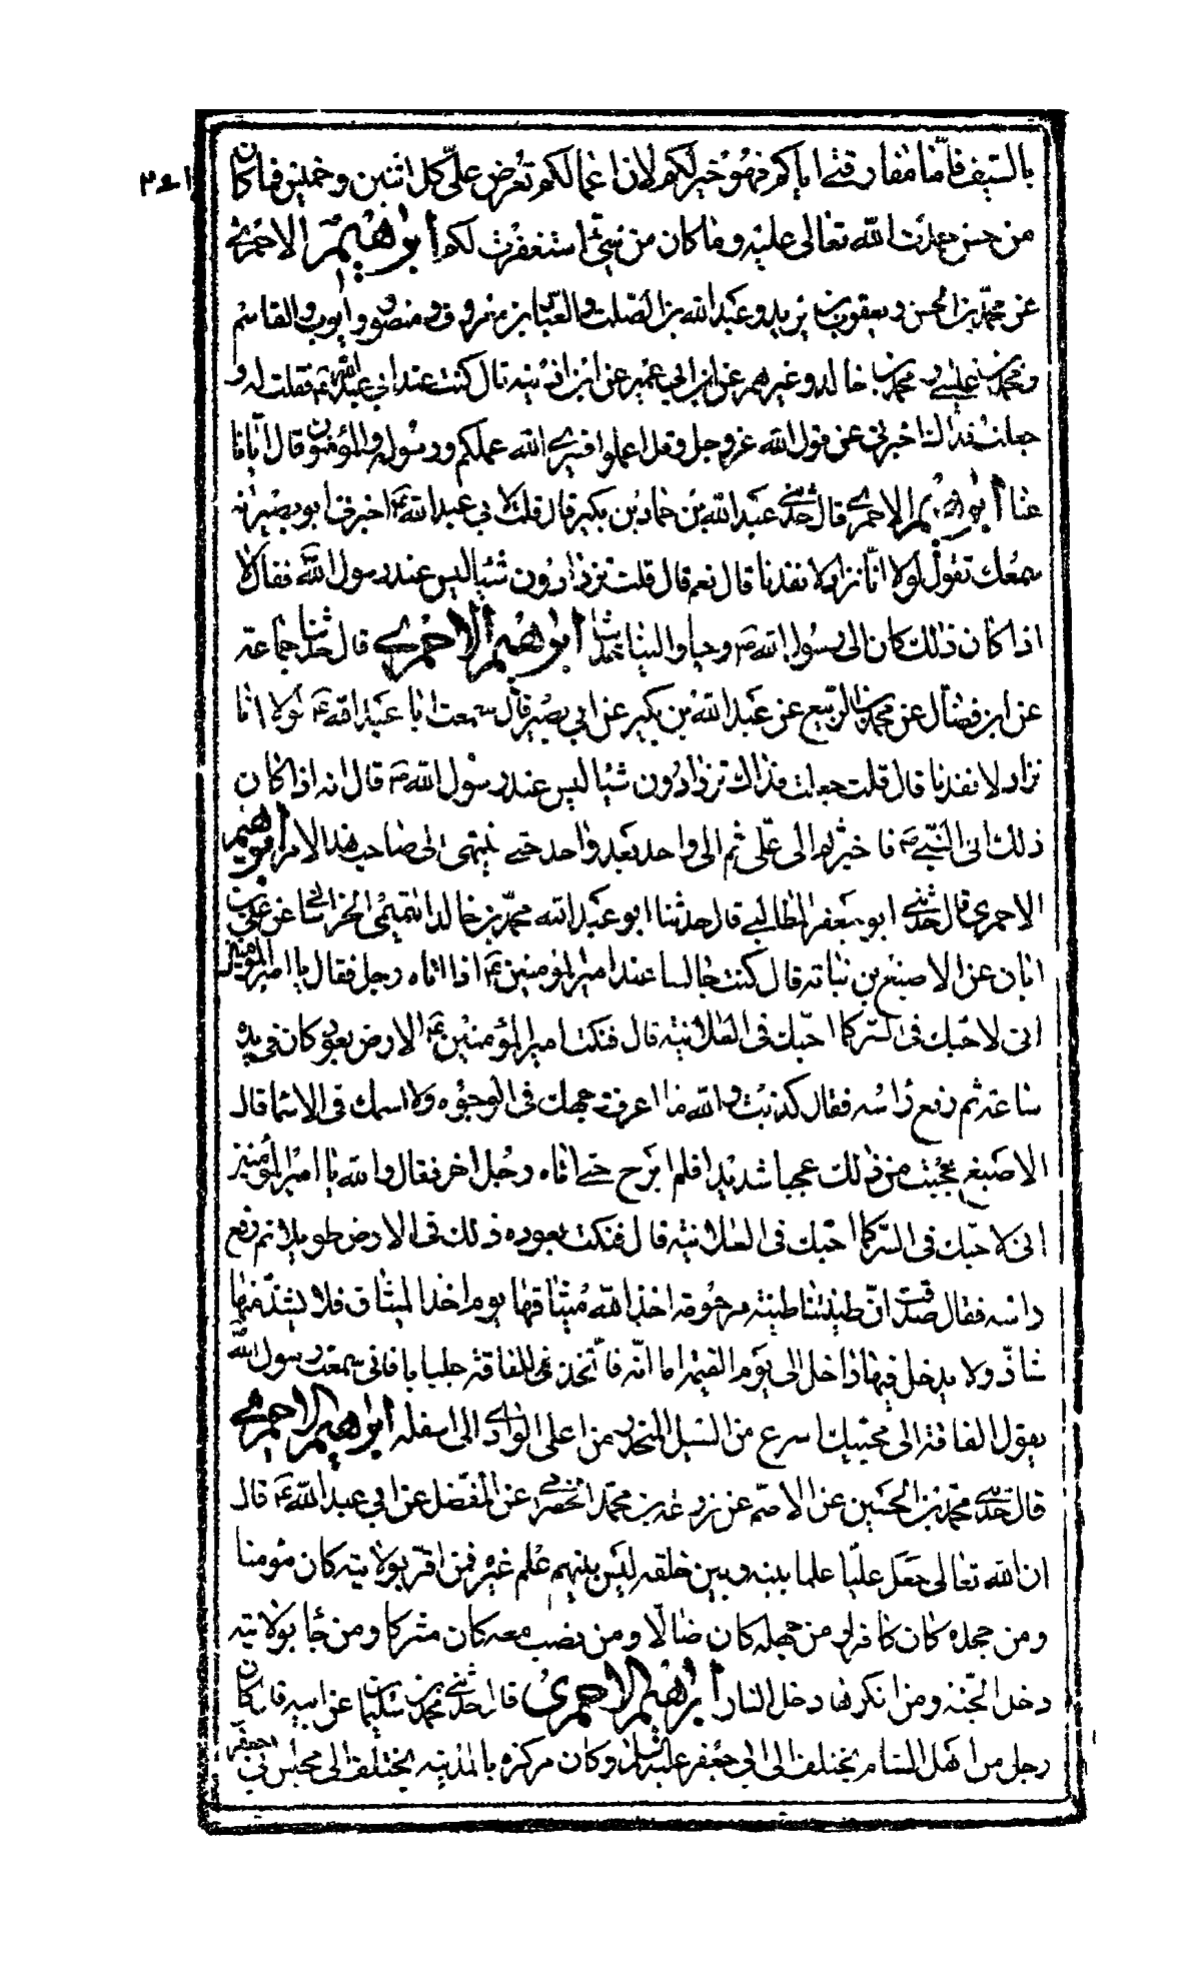 ٢٦١
بالسيف فاما مفارقتي اياكم فهو خير لكم لان اعمالكم تعرض علي كل اثنين وخميس فما كان
من حسن حمدت الله تعالى عليه وما كان من سيئ استغفرت لكم ابراهيم الاحمري
عن محمد بن الحسن ويعقوب بن يزيد وعبد الله بن الصلت والعباس بن معروف ومنصور وايوب والقاسم
ومحمد بن عيسى ومحمد بن خالد وغيرهم عن ابن ابي عمير عن ابن اذينه قال كنت عند ابي عبد الله ع فقلت له
جعلت فداك اخبرني عن قول الله عز وجل وقل اعملوا فسيرى الله عملكم ورسوله والمؤمنون قال ايانا
عنا ابراهيم الاحمري قال حدثني عبد الله بن حماد بن بكير قال قلت لابي عبد الله ع اخبرني ابو بصير انه
سمعك تقول لولا انا نزاد لانفدنا قال نعم قال قلت تزدادون شيئا ليس عند رسول الله ص فقال لا
اذا كان ذلك كان الى رسول الله ص وحيا والينا حديثا ابراهيم الاحمري قال حدثنا جماعة
عن ابن فضال عن محمد بن الربيع عن عبد الله بن بكير عن ابي بصير قال سمعت ابا عبد الله ع لولا انا
نزاد لانفدنا قال قلت جعلت فداك تزدادون شيئا ليس عند رسول الله ص قال انه اذا كان
ذلك اتى النبي ص فاخبر ثم الى علي ثم الى واحد بعد واحد حتى ينتهي الى صاحب هذا الامر ابراهيم
الاحمري قال حدثني ابو جعفر الطالبي قال حدثنا ابو عبد الله محمد بن خالد التميمي الخراساني عن علي بن
ابان عن الاصبغ بن نباتة قال كنت جالسا عند امير المؤمنين ع اذا اتاه رجل فقال يا امير المؤمنين
انى لاحبك في السر كما احبك في العلانيه قال فنكت امير المؤمنين ع الارض بعود كان في يده
ساعة ثم رفع راسه فقال كذبت والله ما اعرف وجهك في الوجوه ولا اسمك في الاسما قال
الاصبغ عجبت من ذلك عجبا شديدا فلم ابرح حتى اتاه رجل اخر فقال والله يا امير المؤمنين
انى لاحبك في السر كما احبك في العلانيه قال فنكت بعوده ذلك في الارض طويلا ثم رفع
راسه فقال صدقت ان طينتنا طينة مرحومة اخذ الله ميثاقها يوم اخذ الميثاق فلا يشذ منها
شاذ ولا يدخل فيها داخل الى يوم القيمه اما انه فاتخذ للفاقة جلبابا فاني سمعت رسول الله
يقول الفاقة الى محبيك اسرع من السيل المنحدر من اعلى الوادي الى اسفله ابراهيم الاحمري
قال حدثني محمد بن الحسين عن الاصم عن زرعة بن محمد الحضرمي عن المفضل عن ابي عبد الله ع قال
ان الله تعالى جعل عليا علما بينه وبين خلقه ليس بينهم علم غيره فمن اقر بولايته كان مؤمنا
ومن جحده كان كافرا ومن جهله كان ضالا ومن نصب معه كان مشركا ومن جا بولايته
دخل الجنة ومن انكرها دخل النار ابراهيم الاحمري قال حدثني محمد بن سليمان عن ابيه قال كان
رجل من اهل الشام يختلف الى ابي جعفر عليه السلام وكان مركزه بالمدينه يختلف الى مجلس ابي جعفر